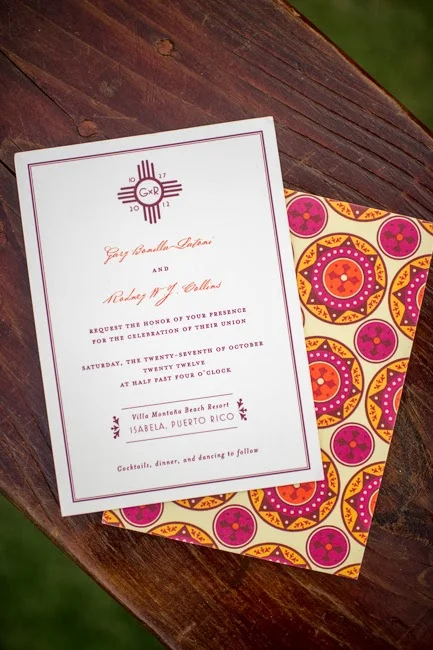 10 27
G×R
20 12
Gary Bonilla-Fatoni
AND
Rodney W.J. Collins
REQUEST THE HONOR OF YOUR PRESENCE
FOR THE CELEBRATION OF THEIR UNION
SATURDAY, THE TWENTY-SEVENTH OF OCTOBER
TWENTY TWELVE
AT HALF PAST FOUR O'CLOCK
Villa Montaña Beach Resort
ISABELA, PUERTO RICO
Cocktails, dinner, and dancing to follow